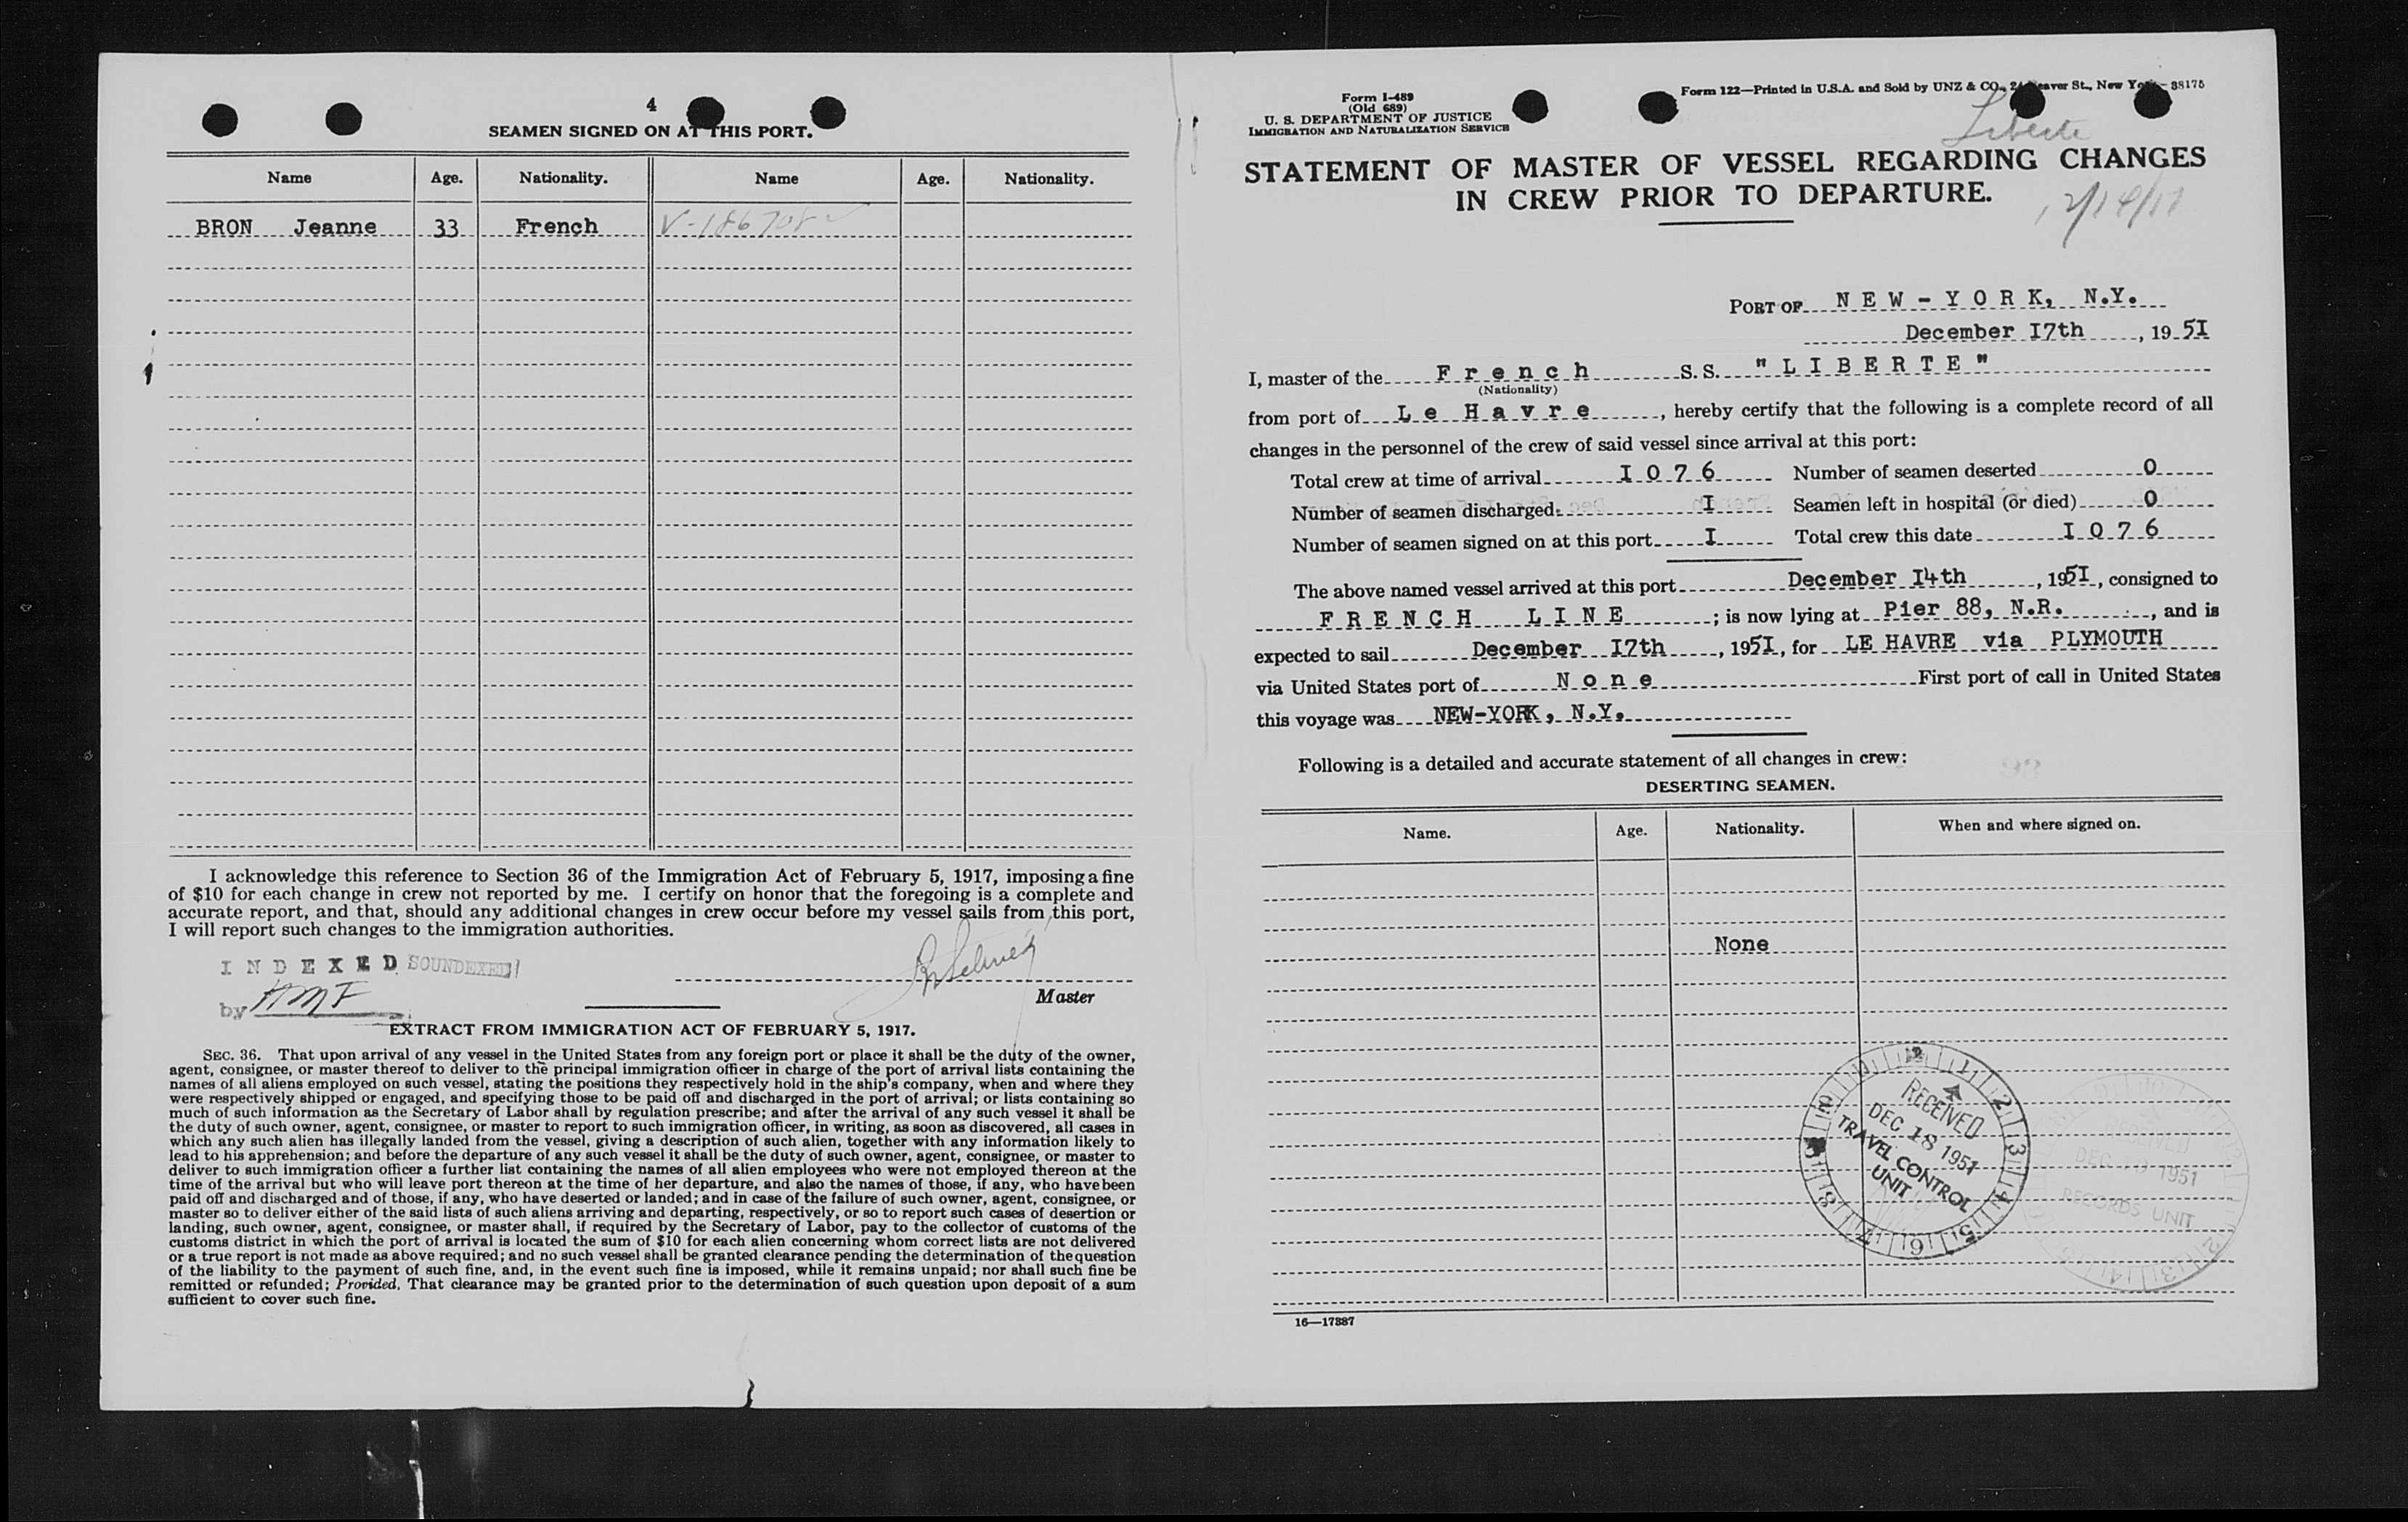 4
SEAMEN SIGNED ON AT THIS PORT.
Name Age. Nationality. Name Age. Nationality.
BRON Jeanne 33 French V-186708
I acknowledge this reference to Section 36 of the Immigration Act of February 5, 1917, imposing a fine
of $10 for each change in crew not reported by me. I certify on honor that the foregoing is a complete and
accurate report, and that, should any additional changes in crew occur before my vessel sails from this port,
I will report such changes to the immigration authorities.
INDEXED SOUNDEXED
by HMF
Master
EXTRACT FROM IMMIGRATION ACT OF FEBRUARY 5, 1917.
SEC. 36. That upon arrival of any vessel in the United States from any foreign port or place it shall be the duty of the owner,
agent, consignee, or master thereof to deliver to the principal immigration officer in charge of the port of arrival lists containing the
names of all aliens employed on such vessel, stating the positions they respectively hold in the ship's company, when and where they
were respectively shipped or engaged, and specifying those to be paid off and discharged in the port of arrival; or lists containing so
much of such information as the Secretary of Labor shall by regulation prescribe; and after the arrival of any such vessel it shall be
the duty of such owner, agent, consignee, or master to report to such immigration officer, in writing, as soon as discovered, all cases in
which any such alien has illegally landed from the vessel, giving a description of such alien, together with any information likely to
lead to his apprehension; and before the departure of any such vessel it shall be the duty of such owner, agent, consignee, or master to
deliver to such immigration officer a further list containing the names of all alien employees who were not employed thereon at the
time of the arrival but who will leave port thereon at the time of her departure, and also the names of those, if any, who have been
paid off and discharged and of those, if any, who have deserted or landed; and in case of the failure of such owner, agent, consignee, or
master so to deliver either of the said lists of such aliens arriving and departing, respectively, or so to report such cases of desertion or
landing, such owner, agent, consignee, or master shall, if required by the Secretary of Labor, pay to the collector of customs of the
customs district in which the port of arrival is located the sum of $10 for each alien concerning whom correct lists are not delivered
or a true report is not made as above required; and no such vessel shall be granted clearance pending the determination of the question
of the liability to the payment of such fine, and, in the event such fine is imposed, while it remains unpaid; nor shall such fine be
remitted or refunded; Provided, That clearance may be granted prior to the determination of such question upon deposit of a sum
sufficient to cover such fine.
Form I-489
(Old 689)
U. S. DEPARTMENT OF JUSTICE
IMMIGRATION AND NATURALIZATION SERVICE
Form 122—Printed in U.S.A. and Sold by UNZ & CO., St., New 38175
Liberte
STATEMENT OF MASTER OF VESSEL REGARDING CHANGES
IN CREW PRIOR TO DEPARTURE.
PORT OF NEW-YORK, N.Y.
December I7th, 19 5I
I, master of the French S. S. "LIBERTE"
(Nationality)
from port of Le Havre, hereby certify that the following is a complete record of all
changes in the personnel of the crew of said vessel since arrival at this port:
Total crew at time of arrival I076 Number of seamen deserted 0
Number of seamen discharged I Seamen left in hospital (or died) 0
Number of seamen signed on at this port I Total crew this date I076
The above named vessel arrived at this port December I4th, 195I, consigned to
FRENCH LINE; is now lying at Pier 88, N.R., and is
expected to sail December I7th, 195I, for LE HAVRE via PLYMOUTH
via United States port of None First port of call in United States
this voyage was NEW-YORK, N.Y.
Following is a detailed and accurate statement of all changes in crew:
DESERTING SEAMEN.
Name. Age. Nationality. When and where signed on.
None
RECEIVED
DEC 18 1951
TRAVEL CONTROL
UNIT
RECEIVED
DEC 1951
RECORDS UNIT
16—17887